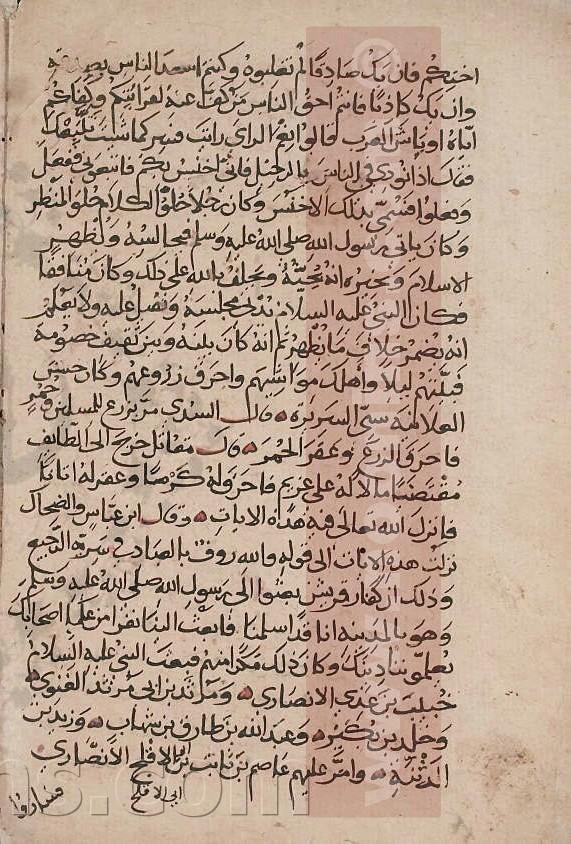 اختكم فان يك صادقا لم تغلبوه وكنتم اسعد الناس بصدقه
وان يك كاذبا فانتم احق الناس من كف عنه لقرابتكم وكفاكم
اياه اوباش العرب قالوا نعم الراي رايت فسر كما شئت نتبعك
فقال اذا نودي في الناس بالرحيل فاني اخنس بكم فاتبعوني ففعل
وفعلوا فسمي بذلك الاخنس وكان رجلا حلو الكلام حلو المنظر
وكان ياتي رسول الله صلى الله عليه وسلم فيجالسه ويظهر
الاسلام ويخبره انه يحبه ويحلف بالله على ذلك وكان منافقا
فكان النبي عليه السلام يدني مجلسه ويقبل عليه ولا يعلم
انه يضمر خلاف ما يظهر ثم انه كان بينه وبين ثقيف خصومة
فبيتهم ليلا واهلك مواشيهم واحرق زروعهم وكان حسن
العلانية سيئ السريرة قال السدي مر بزرع للمسلمين وحمر
فاحرق الزرع وعقر الحمر قال مقاتل خرج الى الطائف
مقتضيا مالا له على غريم فاحرق له كدسا وعقر له اتانا
فانزل الله تعالى فيه هذه الايات وقال ابن عباس والضحاك
نزلت هذه الايات الى قوله والله روف بالعباد في سرية الرجيع
وذلك ان كفار قريش بعثوا الى رسول الله صلى الله عليه وسلم
وهو بالمدينة انا قد اسلمنا فابعث الينا نفرا من علماء اصحابك
يعلموننا دينك وكان ذلك مكرا منهم فبعث النبي عليه السلام
خبيب بن عدي الانصاري ومرثد بن ابي مرثد الغنوي
وخلد بن بكير وعبد الله بن طارق بن شهاب وزيد بن
الدثنة وامر عليهم عاصم بن ثابت بن ابي الافلح الانصاري
ابي الافلح
فساروا